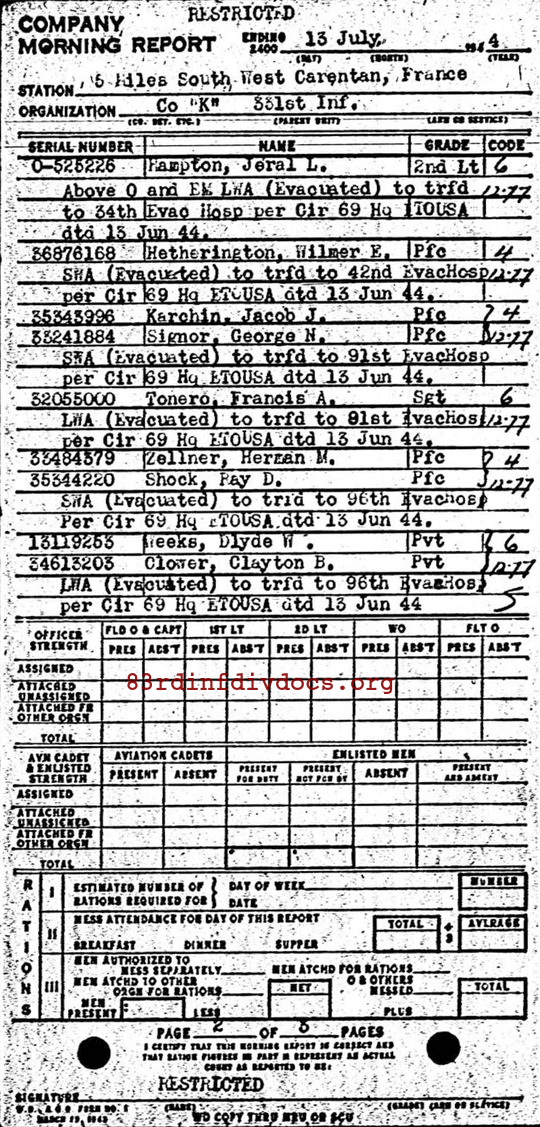 RESTRICTED
COMPANY
MORNING REPORT ENDING 2400 13 July, 1944
(DAY) (MONTH) (YEAR)
STATION 5 Miles South West Carentan, France
ORGANIZATION Co "K" 331st Inf.
(CO. DET. ETC.) (PARENT UNIT) (ARM OR SERVICE)
SERIAL NUMBER NAME GRADE CODE
O-525226 Hampton, Jeral L. 2nd Lt 6
Above O and EM LWA (Evacuated) to trfd 12-77
to 34th Evac Hosp per Cir 69 Hq ETOUSA
dtd 13 Jun 44.
36876168 Hetherington, Wilmer E. Pfc 4
SWA (Evacuated) to trfd to 42nd EvacHosp 12-77
per Cir 69 Hq ETOUSA dtd 13 Jun 44.
35343996 Karchin, Jacob J. Pfc 4
35241884 Signor, George N. Pfc 12-77
SWA (Evacuated) to trfd to 91st EvacHosp
per Cir 69 Hq ETOUSA dtd 13 Jun 44.
32055000 Tonero, Francis A. Sgt 6
LWA (Evacuated) to trfd to 91st EvacHosp 12-77
per Cir 69 Hq ETOUSA dtd 13 Jun 44.
33484379 Zellner, Herman M. Pfc 4
35344220 Shock, Ray D. Pfc 12-77
SWA (Evacuated) to trfd to 96th EvacHosp
Per Cir 69 Hq ETOUSA dtd 13 Jun 44.
13119253 Weeks, Dlyde W. Pvt 6
34613203 Clower, Clayton B. Pvt 12-77
LWA (Evacuated) to trfd to 96th EvacHosp
per Cir 69 Hq ETOUSA dtd 13 Jun 44 5
OFFICER STRENGTH FLD O & CAPT 1ST LT 2D LT WO FLT O
PRES ABS'T PRES ABS'T PRES ABS'T PRES ABS'T PRES ABS'T
ASSIGNED
ATTACHED UNASSIGNED
83rdinfdivdocs.org
ATTACHED FR OTHER ORGN
TOTAL
AVN CADET & ENLISTED STRENGTH AVIATION CADETS ENLISTED MEN
PRESENT ABSENT PRESENT FOR DUTY PRESENT NOT FOR DY ABSENT PRESENT AND ABSENT
ASSIGNED
ATTACHED UNASSIGNED
ATTACHED FR OTHER ORGN
TOTAL
RATIONS
I ESTIMATED NUMBER OF RATIONS REQUIRED FOR DAY OF WEEK DATE NUMBER
II MESS ATTENDANCE FOR DAY OF THIS REPORT TOTAL ÷ 3 AVERAGE
BREAKFAST DINNER SUPPER
III MEN AUTHORIZED TO MESS SEPARATELY MEN ATCHD FOR RATIONS
MEN ATCHD TO OTHER ORGN FOR RATIONS NET & OTHERS MESSED TOTAL
MEN PRESENT LESS PLUS
PAGE 2 OF 3 PAGES
I CERTIFY THAT THIS MORNING REPORT IS CORRECT AND
THAT RATION FIGURES IN PART III REPRESENT AN ACTUAL
COUNT AS REPORTED TO ME:
RESTRICTED
SIGNATURE
W.D., A.G.O. FORM NO. 1
MARCH 19, 1943 (NAME) (GRADE) (ARM OR SERVICE)
WD COPY THRU MRU OR SCU